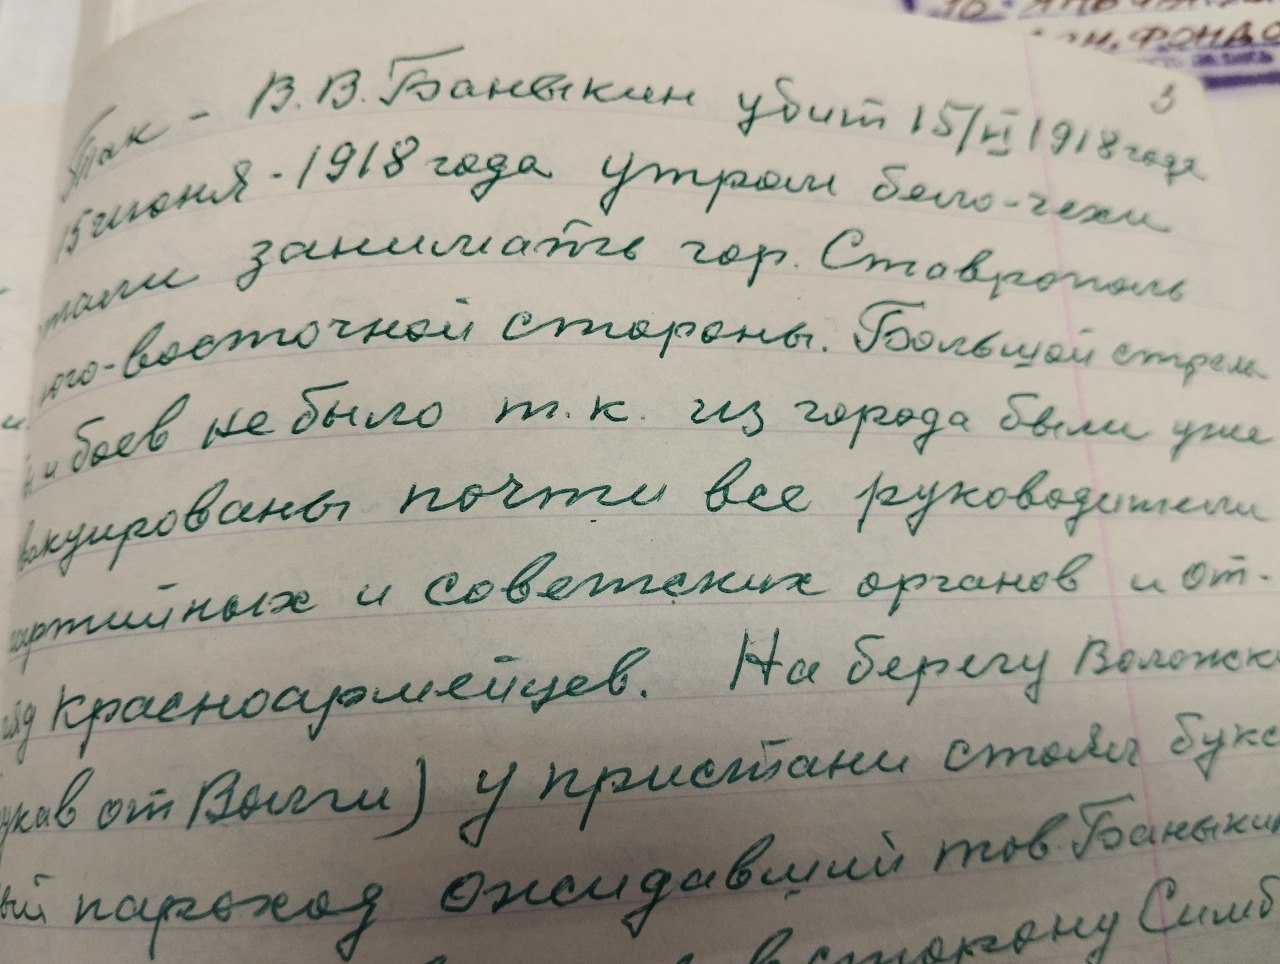 он. ФОНДО
3
Так - В.В. Баныкин убит 15/VI 1918 года
15 июня - 1918 года утром бело-чехи
стали занимать гор. Ставрополь
юго-восточной стороны. Большой стрель
й и боев не было т.к. из города были уже
вакуированы почти все руководители
партийных и советских органов и от-
ряд красноармейцев. На берегу Воложк
укав от Волги) у пристани стоял букс
ый пароход ожидавший тов. Баныкин
в сторону Симб